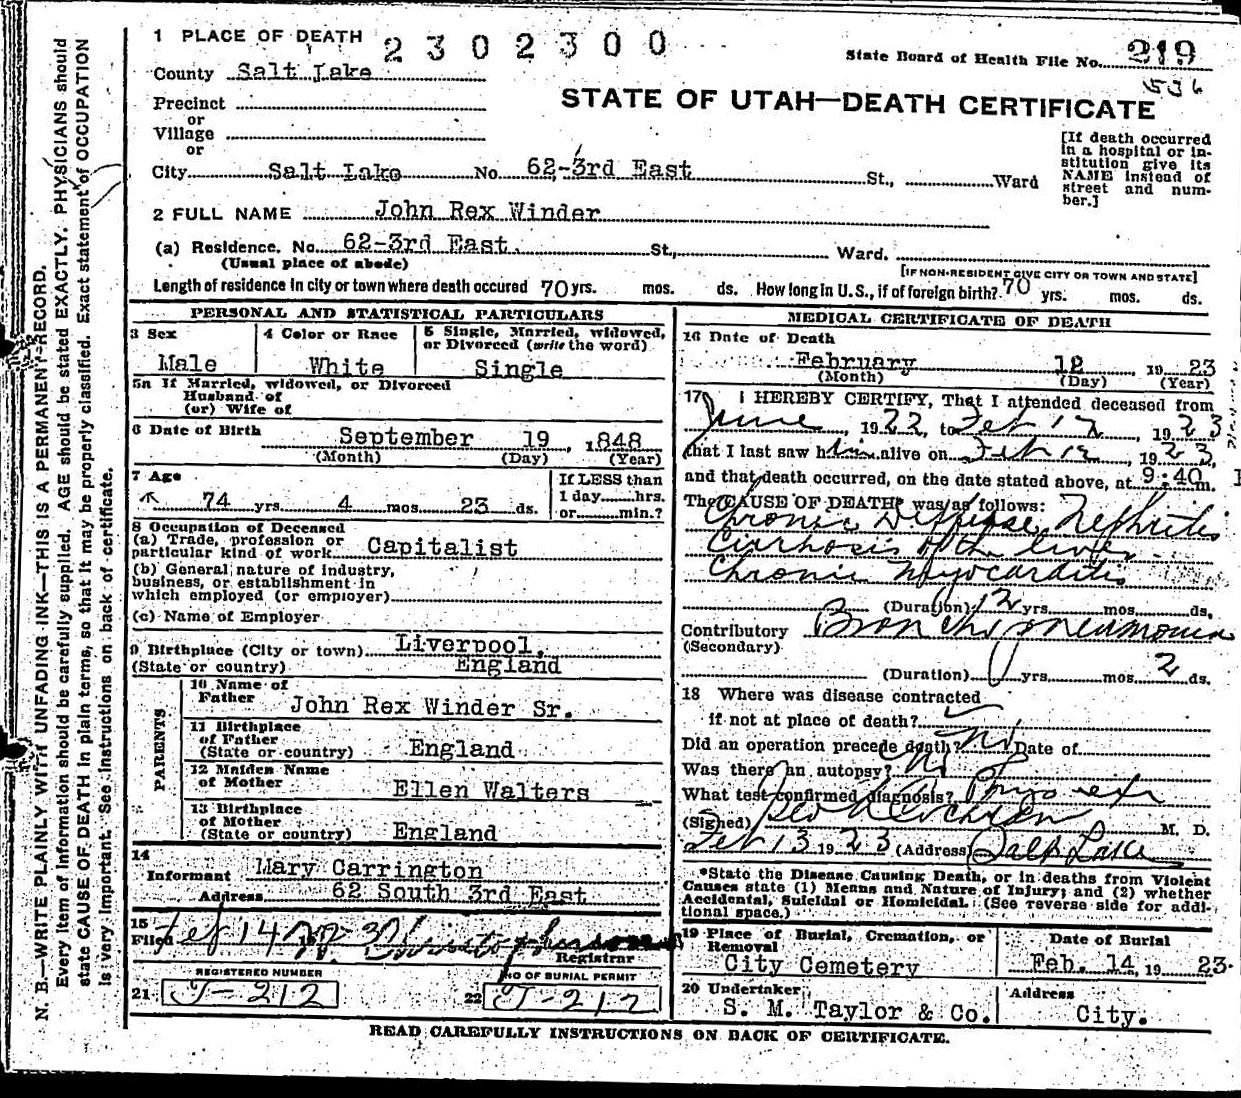 1 PLACE OF DEATH 2302300
State Board of Health File No. 219
536
County Salt Lake
STATE OF UTAH—DEATH CERTIFICATE
Precinct
or
Village
or
City Salt Lake No. 62-3rd East St., Ward
[If death occurred in a hospital or institution give its NAME instead of street and number.]
2 FULL NAME John Rex Winder
(a) Residence. No. 62-3rd East. St., Ward.
(Usual place of abode)
[IF NON-RESIDENT GIVE CITY OR TOWN AND STATE]
Length of residence in city or town where death occured 70 yrs. mos. ds. How long in U.S., if of foreign birth? 70 yrs. mos. ds.
PERSONAL AND STATISTICAL PARTICULARS
3 Sex
Male
4 Color or Race
White
5 Single, Married, widowed,
or Divorced (write the word)
Single
5a If Married, widowed, or Divorced
Husband of
(or) Wife of
6 Date of Birth September 19, 1848
(Month) (Day) (Year)
7 Age
74 yrs. 4 mos. 23 ds.
If LESS than
1 day......hrs.
or......min.?
8 Occupation of Deceased
(a) Trade, profession or
particular kind of work Capitalist
(b) General nature of industry,
business, or establishment in
which employed (or employer)
(c) Name of Employer
9 Birthplace (City or town) Liverpool,
(State or country) England
PARENTS
10 Name of
Father John Rex Winder Sr.
11 Birthplace
of Father
(State or country) England
12 Maiden Name
of Mother Ellen Walters
13 Birthplace
of Mother
(State or country) England
14
Informant Mary Carrington
Address 62 South 3rd East
15
Filed Feb 14
Registrar
REGISTERED NUMBER
21 J-212
NO OF BURIAL PERMIT
22 J-212
MEDICAL CERTIFICATE OF DEATH
16 Date of Death
February 12 1923
(Month) (Day) (Year)
17 I HEREBY CERTIFY, That I attended deceased from
June, 1922, to Feb 12, 1923
that I last saw him alive on Feb 12, 1923,
and that death occurred, on the date stated above, at 9:40 m.
The CAUSE OF DEATH* was as follows:
Chronic Diffuse Nephritis
Cirrhosis of the liver
Chronic Myocarditis
(Duration) 12 yrs. mos. ds.
Contributory Broncho pneumonia
(Secondary)
(Duration) yrs. mos. 2 ds.
18 Where was disease contracted
if not at place of death?
Did an operation precede death? No Date of
Was there an autopsy? No
What test confirmed diagnosis? Phys ex
(Signed) M. D.
Feb 13 1923 (Address) Salt Lake
*State the Disease Causing Death, or in deaths from Violent
Causes state (1) Means and Nature of Injury; and (2) whether
Accidental, Suicidal or Homicidal. (See reverse side for addi-
tional space.)
19 Place of Burial, Cremation, or
Removal
City Cemetery
Date of Burial
Feb. 14, 1923.
20 Undertaker
S. M. Taylor & Co.
Address
City.
READ CAREFULLY INSTRUCTIONS ON BACK OF CERTIFICATE.
N. B.—WRITE PLAINLY WITH UNFADING INK—THIS IS A PERMANENT RECORD.
Every item of information should be carefully supplied. AGE should be stated EXACTLY. PHYSICIANS should
state CAUSE OF DEATH in plain terms, so that it may be properly classified. Exact statement of OCCUPATION
is very important. See instructions on back of certificate.